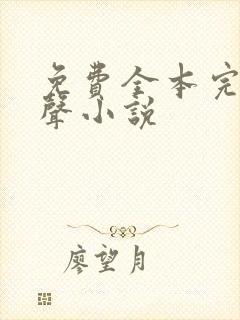 免費全本完
聲小説
廖望月